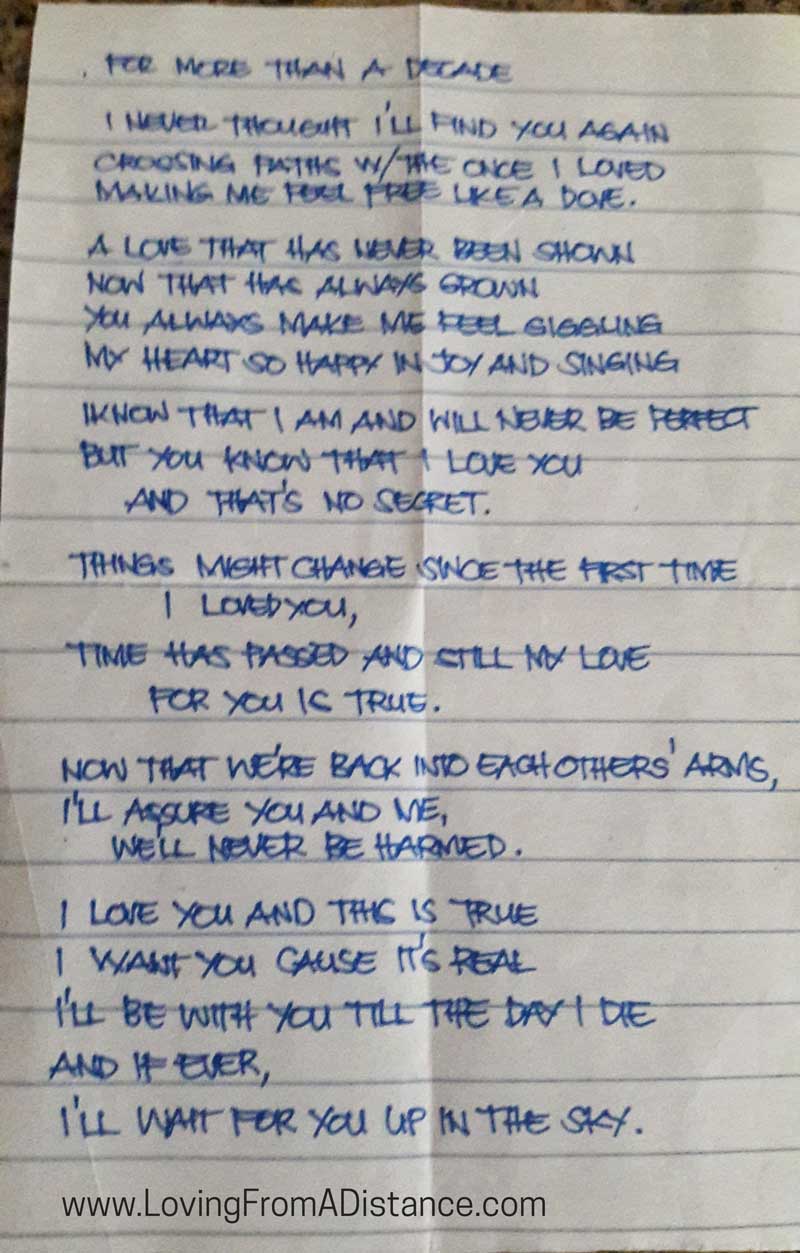 FOR MORE THAN A DECADE
I NEVER THOUGHT I'LL FIND YOU AGAIN
CROOSING PATHS W/THE ONCE I LOVED
MAKING ME FEEL FREE LIKE A DOVE.
A LOVE THAT HAS NEVER BEEN SHOWN
NOW THAT HAS ALWAYS GROWN
YOU ALWAYS MAKE ME FEEL GIGGLING
MY HEART SO HAPPY IN JOY AND SINGING
I KNOW THAT I AM AND WILL NEVER BE PERFECT
BUT YOU KNOW THAT I LOVE YOU
AND THAT'S NO SECRET.
THINGS MIGHT CHANGE SINCE THE FIRST TIME
I LOVED YOU,
TIME HAS PASSED AND STILL MY LOVE
FOR YOU IS TRUE.
NOW THAT WE'RE BACK INTO EACH OTHERS' ARMS,
I'LL ASSURE YOU AND ME,
WE'LL NEVER BE HARMED.
I LOVE YOU AND THIS IS TRUE
I WANT YOU CAUSE IT'S REAL
I'LL BE WITH YOU TILL THE DAY I DIE
AND IF EVER,
I'LL WAIT FOR YOU UP IN THE SKY.
www.LovingFromADistance.com